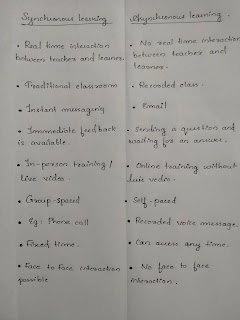 Synchronous learning
• Real time interaction
between teacher and learner.
• Traditional classroom
• Instant messaging
• Immediate feedback
is available.
• In-person training /
live video.
• Group-spaced
• Eg: Phone call
• Fixed time.
• Face to face interaction
possible
Asynchronous learning.
• No real-time interaction
between teacher and
learner.
• Recorded class.
• Email
• Sending a question and
waiting for an answer.
• Online training without
live video.
• Self-paced
• Recorded voice message.
• Can access any time.
• No face to face
interaction.